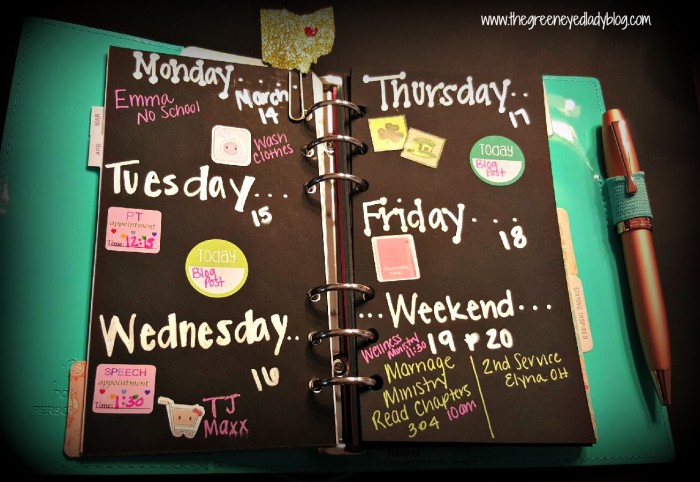 www.thegreeneyedladyblog.com
Monday...
March
14
Emma
No School
Wash
Clothes
Tuesday...
15
PT
appointment
Time: 12:15
TODAY
Blog
Post
Wednesday..
16
SPEECH
appointment
Time: 1:30
TJ
Maxx
Thursday..
17
TODAY
Blog
Post
Friday...
18
...Weekend...
19 & 20
Wellness
Ministry
11:30
Marriage
Ministry
Read Chapters
3&4 10am
2nd Service
Elyria OH